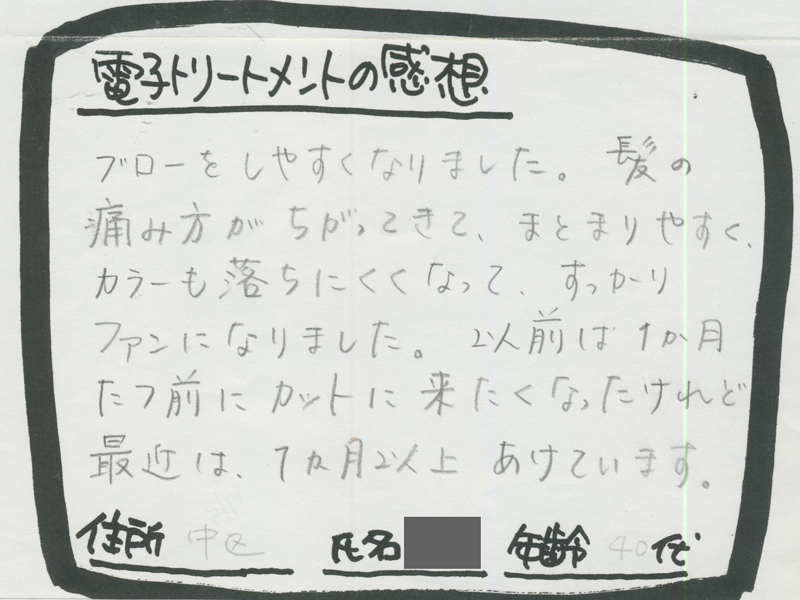 電子トリートメントの感想
ブローをしやすくなりました。髪の
痛み方がちがってきて、まとまりやすく、
カラーも落ちにくくなって、すっかり
ファンになりました。以前は1か月
たつ前にカットに来たくなったけれど
最近は、1カ月以上あけています。
住所 中区 氏名 年齢 40代